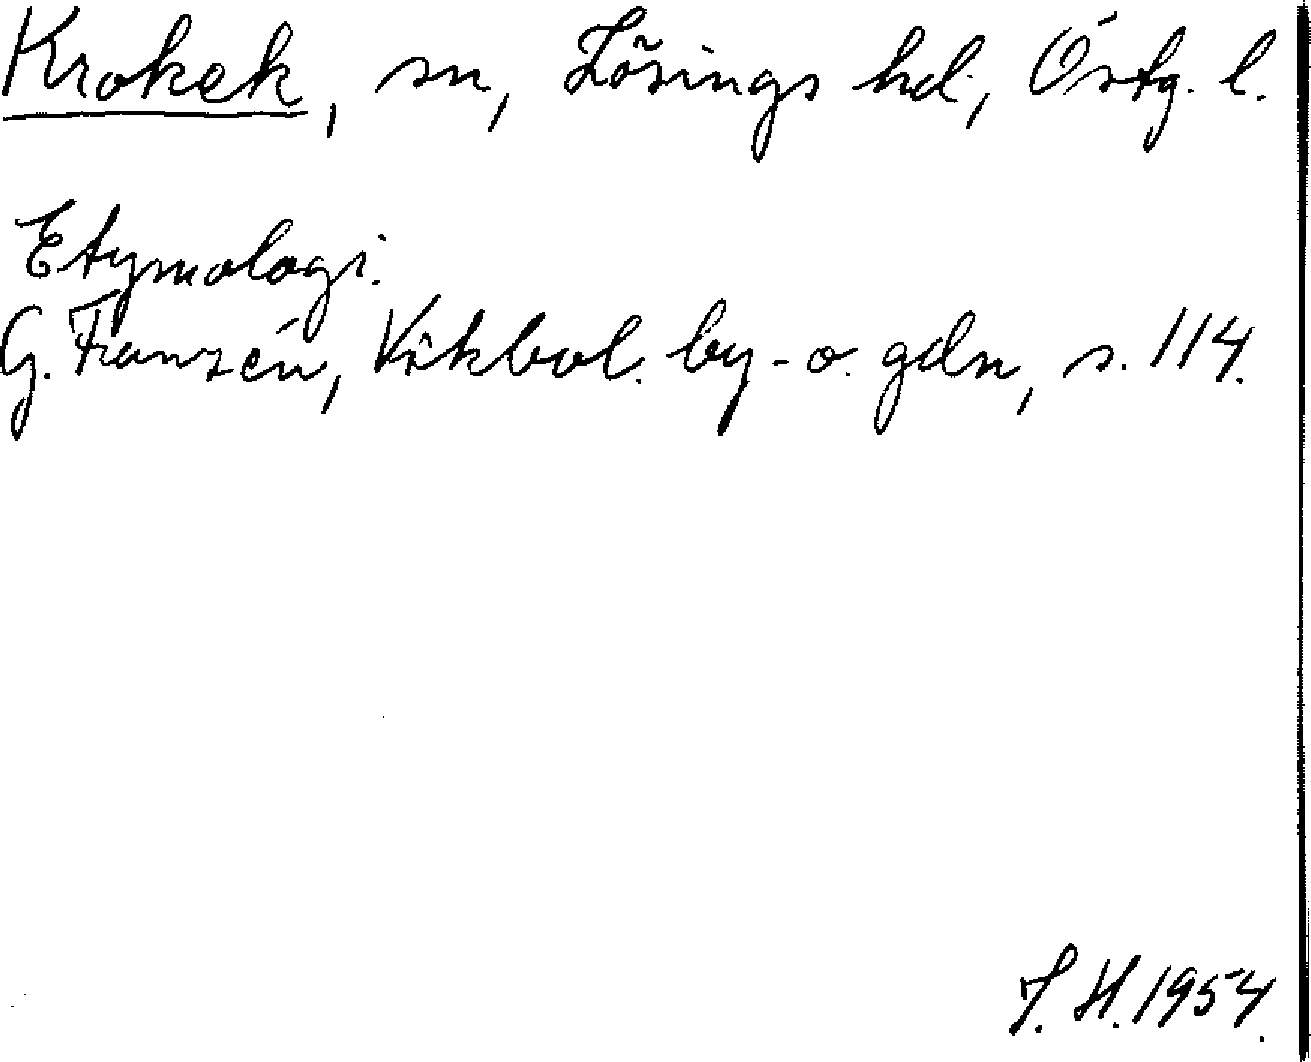 Krokek, sn, Lösings hd, Östg. l.
Etymologi.
G. Franzén, Vikbol. by- o. gdn, s. 114.
J. H. 1954.